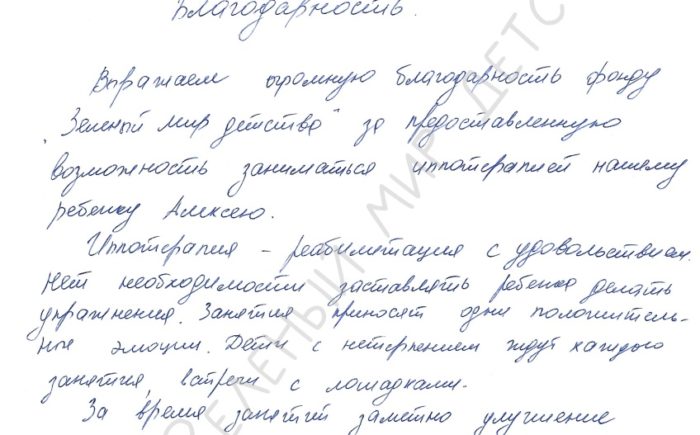 Благодарность.
Выражаем огромную благодарность фонду
"Зеленый мир детства" за предоставленную
возможность заниматься иппотерапией нашему
ребенку Алексею.
Иппотерапия – реабилитация с удовольствием.
Нет необходимости заставлять ребенка делать
упражнения. Занятия приносят одни положитель-
ные эмоции. Дети с нетерпением ждут каждого
занятия, встречи с лошадками.
За время занятий заметно улучшение
ЗЕЛЕНЫЙ МИР ДЕТС